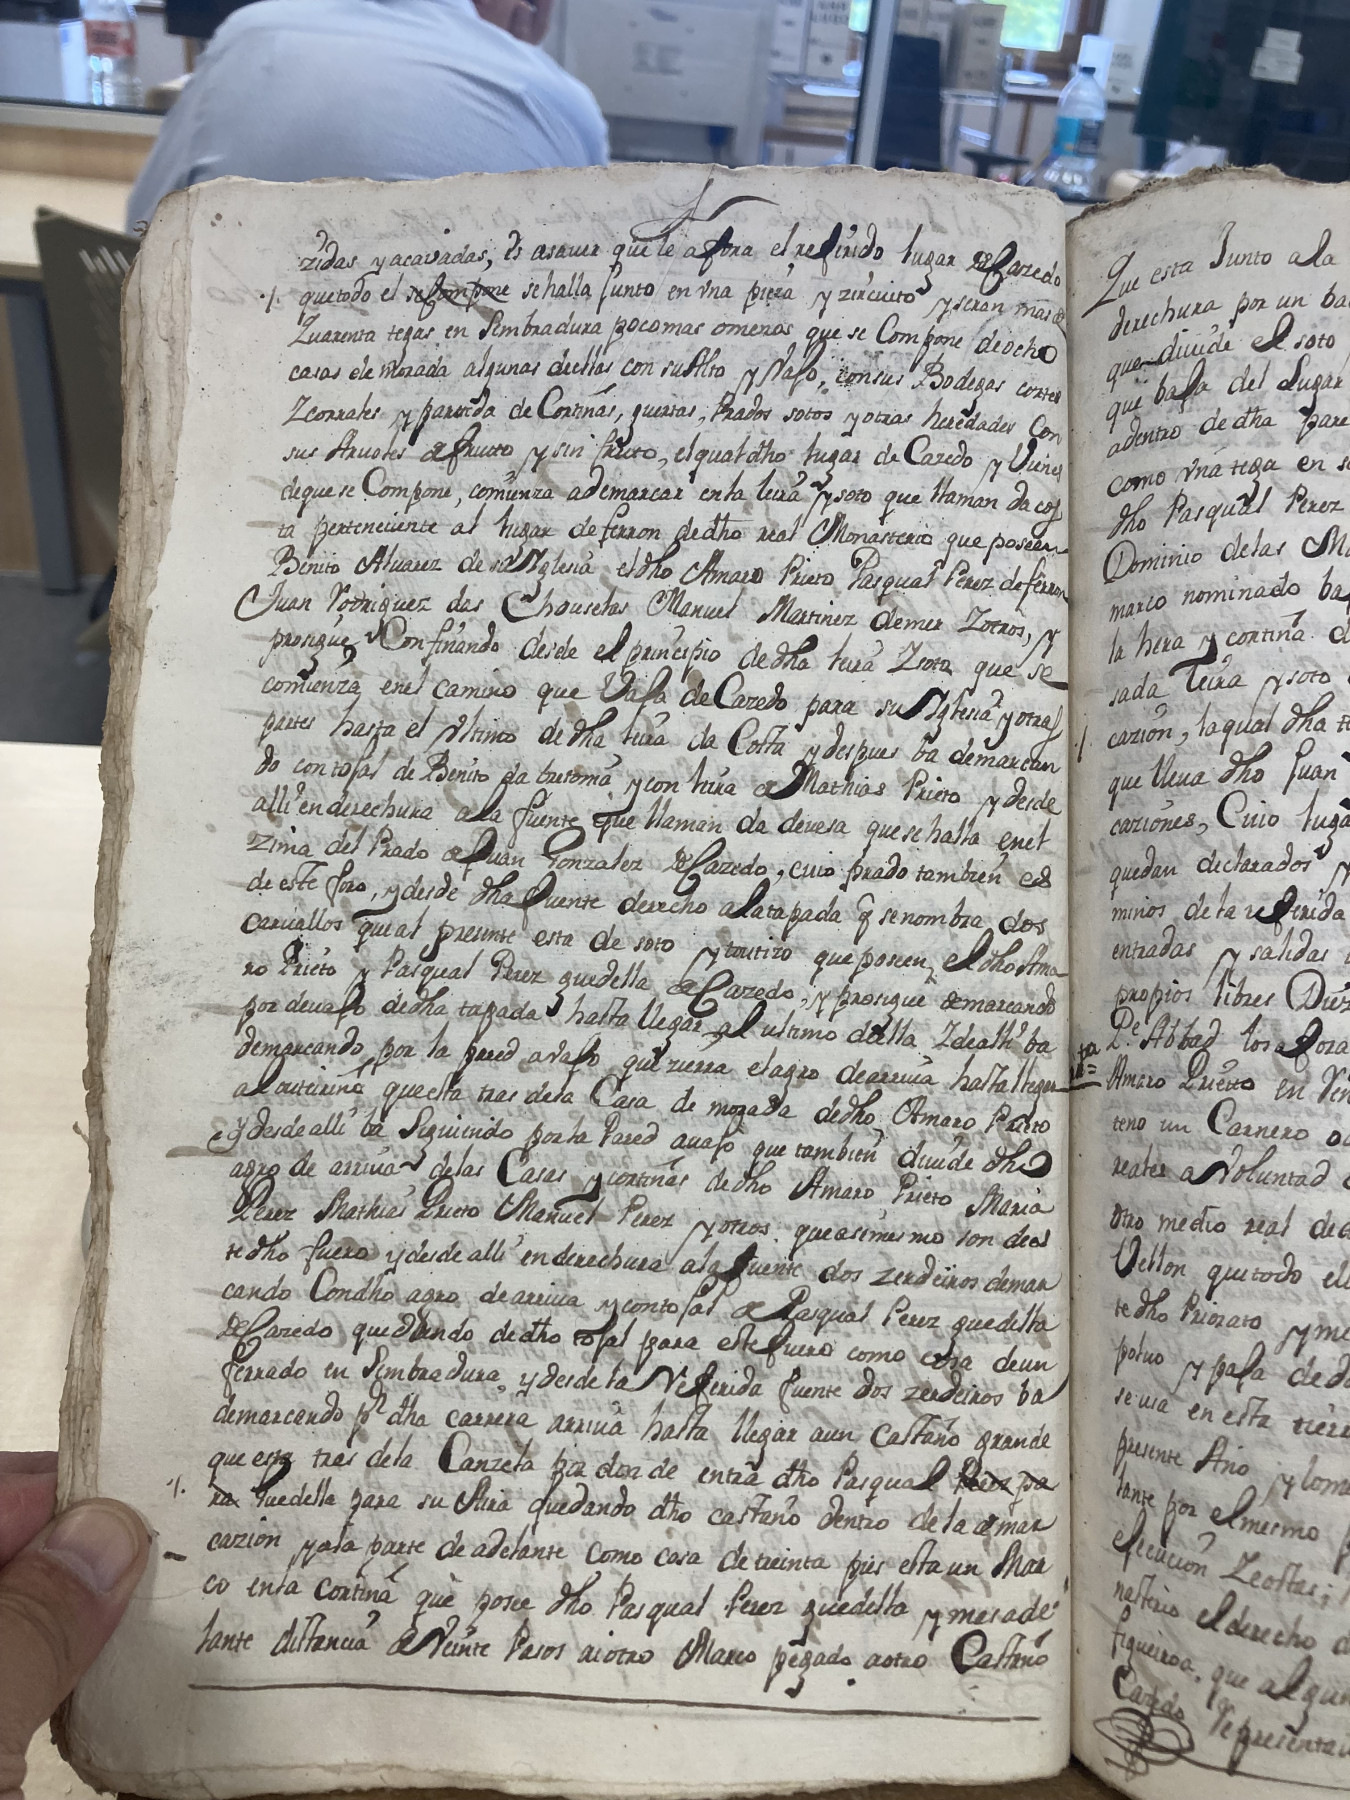 zidas y acavadas, es asaver que le afora el referido lugar de Cazedo
que todo el se compone se halla Junto en vna pieza y zircuito y seran mas de
Quarenta tegas en Sembradura poco mas omenos que se Compone de ocho
casas de Morada algunas dellas con su Alto y Vajo, con sus Bodegas cortes
Zcorrales y parreda de Cortiñas, guertas, Prados sotos y otras heredades Con
sus Arvoles de fruto y sin fruto, el qual dho lugar de Cazedo y Vienes
de que se Compone, comienza a demarcar en la leira y soto que llaman da cos
ta perteneciente al lugar de ferron de dho real Monasterio que poseen
Benito Alvarez de sa Yglesia el dho Amaro Prieto Pasqual Perez de ferron
Juan Rodriguez das Chouselas Manuel Martinez de mer Zotros, y
prosigue Confinando desde el principio de dha leira Zsoto que se
comienza en el camino que Vaja de Cazedo para su Yglesia y otras
partes hasta el Vltimo de dha leira da Costa y despues ba demarcan
do con tojal de Benito da bretoma y con leira de Mathias Prieto y desde
alli en derechura a la fuente que llaman da devesa que se halla en el
zima del Prado de Juan Gonzalez de Cazedo, cuio prado tambien es
de este foro, y desde dha fuente derecho a la tapada q se nombra dos
carvallos que al presente esta de soto y toutizo que poseen el dho Ama
ro Prieto y Pasqual Perez guedella de Cazedo, y prosigue demarcando
por devajo de dha tapada hasta llegar al ultimo della Zde alli ba
demarcando por la pared avajo que zierra el agro de arriva hasta llegar
al outeiriño que esta tras de la Casa de morada de dho Amaro Prieto
y desde alli ba Siguiendo por la Pared avajo que tambien divide dho
agro de arriva de las Casas y cortiñas de dho Amaro Prieto Maria
Perez Mathias Prieto Manuel Perez y otros que asimesmo son de es
te dho fuero y desde alli en derechura a la fuente dos zerdeiros demar
cando Con dho agro de arriva y con tojal de Pasqual Perez guedella
de Cazedo quedando de dho tojal para este fuero como cosa de un
ferrado en Sembradura, y desde la Referida fuente dos zerdeiros ba
demarcando pr dha carrera arriva hasta llegar a un Castaño grande
que esta tras de la Canzela por donde entra dho Pasqual Perez pa
ra Guedella para su Aira quedando dho castaño dentro de la demar
cazion y a la parte de adelante como cosa de treinta pies esta un Mar
co en la cortiña que posee dho Pasqual Perez guedella y mas ade
lante distancia de Veinte Pasos ai otro Marco pegado a otro Castaño
Que esta Junto a la
derechura por un ba
que divide el soto
que baja del Lugar
adentro de dha pare
como vna tega en s
dho Pasqual Perez
Dominio de las M
marco nominado ba
la hera y cortiña d
sada leira y soto
cazion, la qual dha
que lleva dho Juan
caziones, Cuio luga
quedan declarados y
minos de la referida
entradas y salidas
propios libres Diez
Pe. Abbad los afora
Amaro Prieto en
teno un Carnero
reales a Voluntad
otro medio real de
Vellon que todo el
te dho Priorato y me
polvo y paja de d
se usa en esta tierr
presente Año y lome
tante por el mesmo
ejecucion Zcostas;
nasterio el derecho d
figueiroa, que algun
Cazedo Representa